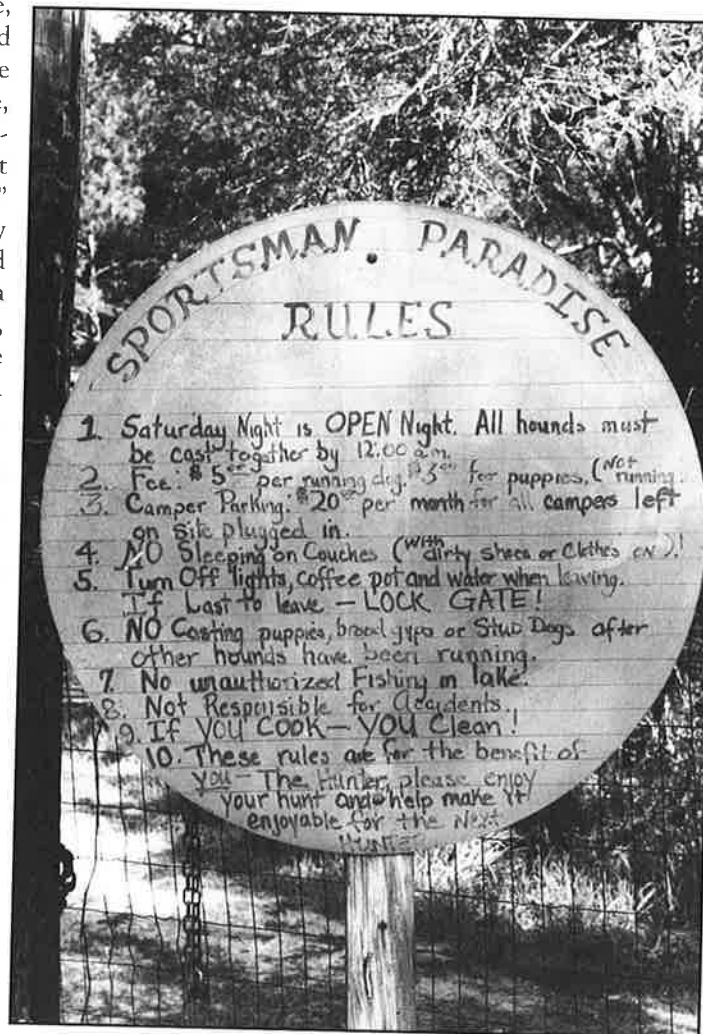 SPORTSMAN PARADISE
RULES
1. Saturday Night is OPEN Night. All hounds must
be cast together by 12:00 a.m.
2. Fee: $5.00 per running dog. $3.00 for puppies, (Not running.
3. Camper Parking: $20.00 per month for all campers left
on site plugged in.
4. NO Sleeping on Couches (with dirty shoes or Clothes ON).!
5. Turn Off lights, coffee pot and water when leaving.
If Last to leave — LOCK GATE!
6. NO Casting puppies, brood gyps or Stud Dogs after
other hounds have been running.
7. No unauthorized Fishing in lake.
8. Not Responsible for Accidents.
9. If YOU COOK — YOU Clean!
10. These rules are for the benefit of
you — The Hunter, please enjoy
your hunt and help make it
enjoyable for the Next
Hunter